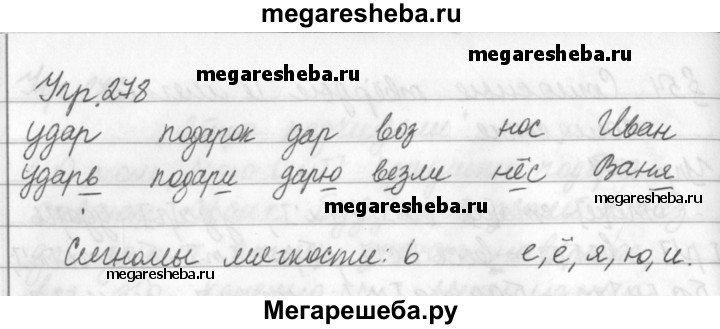 megaresheba.ru
Упр. 278
megaresheba.ru
megaresheba.ru
удар подарок дар воз нос Иван
ударь подари дарю везли нёс Ваня
megaresheba.ru
megaresheba.ru
Сигналы мягкости: ь е, ё, я, ю, и.
megaresheba.ru
Мегарешеба.ру